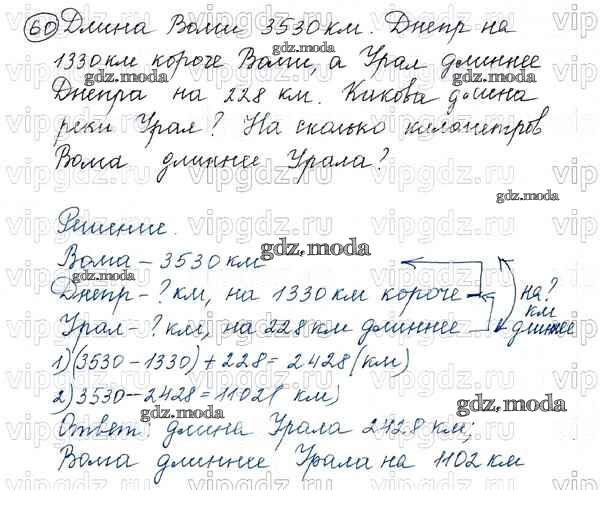 60 Длина Волги 3530 км. Днепр на
1330 км короче Волги, а Урал длиннее
Днепра на 228 км. Какова длина
реки Урал? На сколько километров
Волга длиннее Урала?
Решение.
Волга – 3530 км
Днепр - ? км, на 1330 км короче
Урал - ? км, на 228 км длиннее
на?
км
длиннее
1) (3530 – 1330) + 228 = 2428 (км)
2) 3530 – 2428 = 1102 ( км)
Ответ: длина Урала 2428 км;
Волга длиннее Урала на 1102 км
gdz.moda
vipgdz.ru